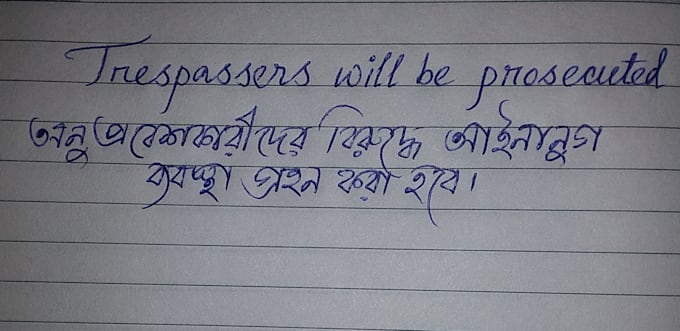 Trespassers will be prosecuted
অনুপ্রবেশকারীদের বিরুদ্ধে আইনানুগ
ব্যবস্থা গ্রহন করা হবে।